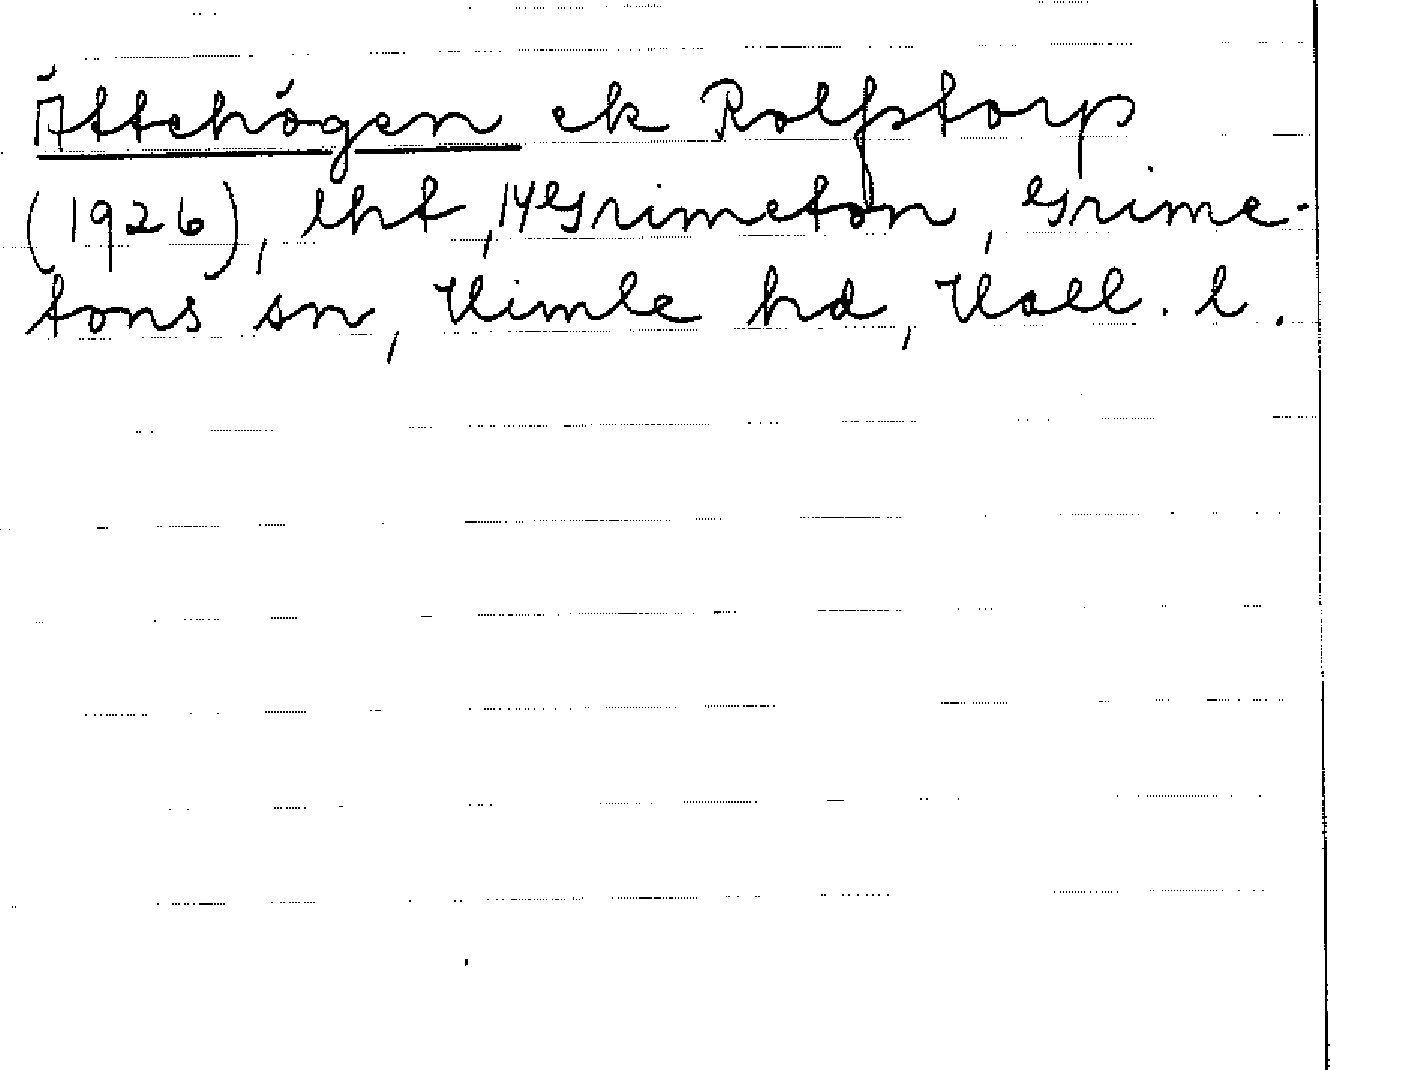 Ättehögen ek Rolfstorp
(1926), lht, 14 Grimeton, Grime-
tons sn, Himle hd, Hall. l.